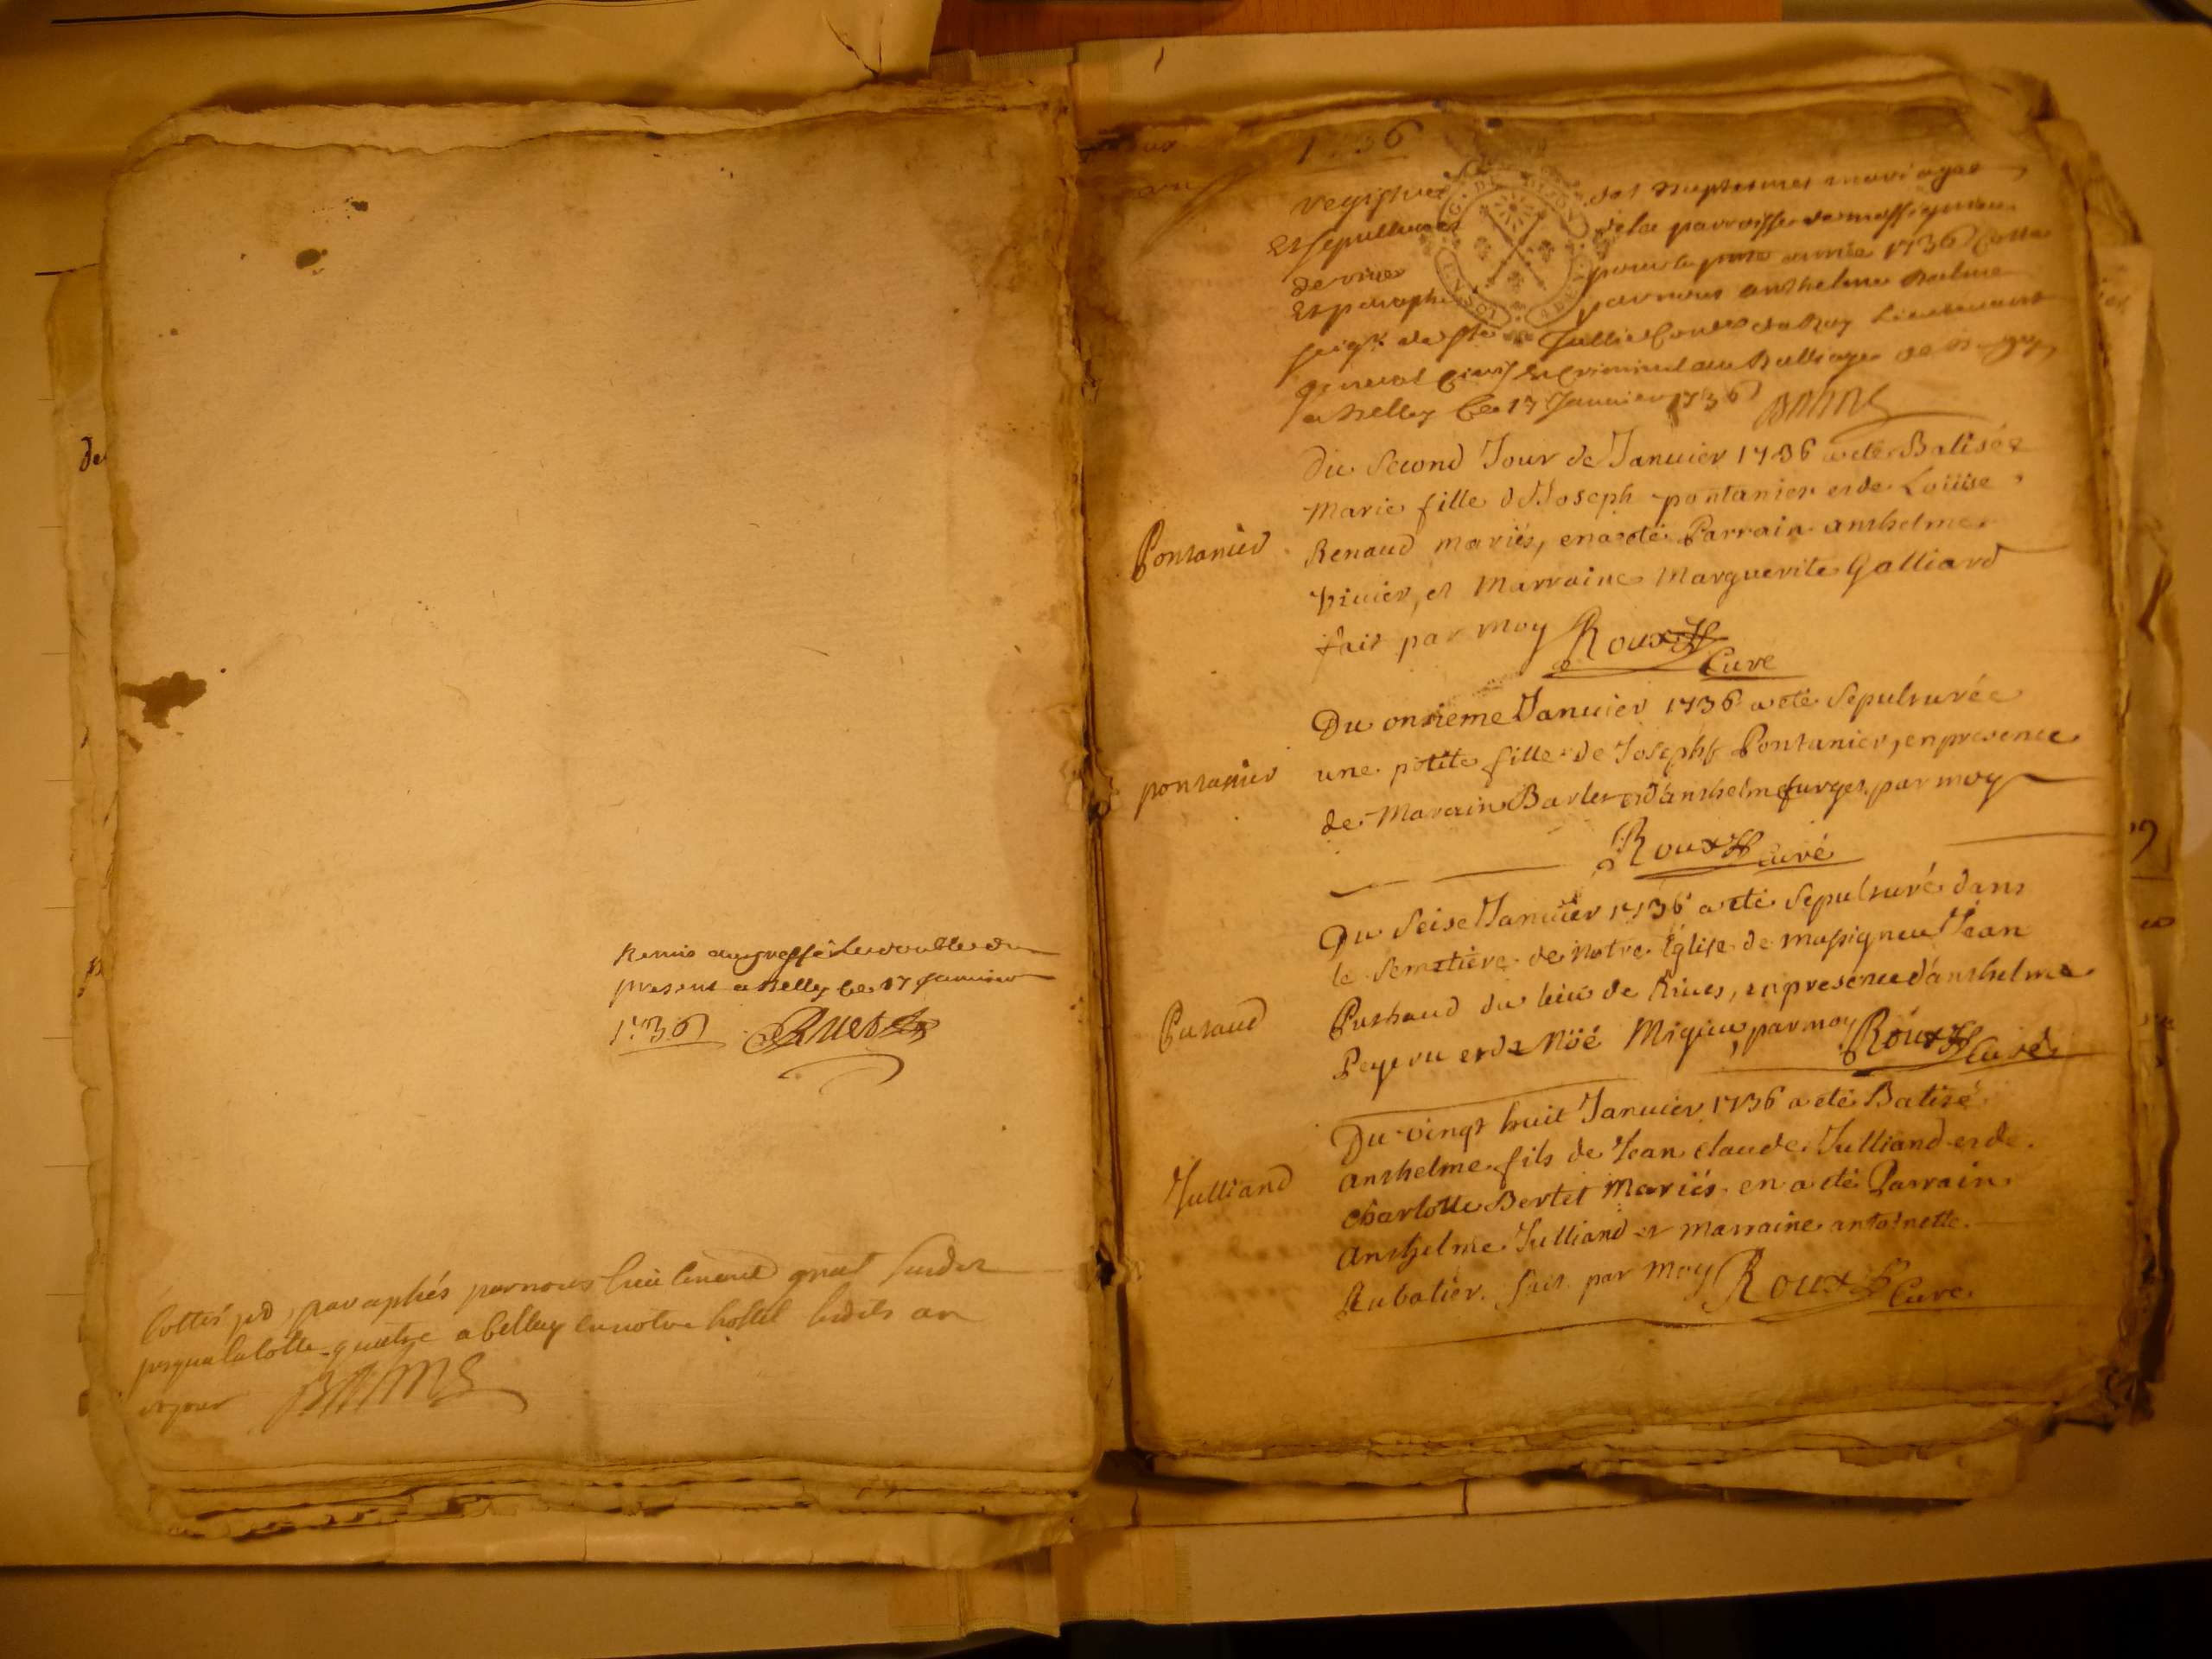 Remis au greffe le double du
present a Belley le 17 Janvier
1736 Ruet
Cottés pd, paraphés par nous lieutenant gnal susdit
jusqua la cotte quatre a belley en notre hostel lesdits an
et jour Balme
1736
registre des baptesmes mariages
Et sepultures de la parroisse de massignieu
de rives pour la pnte année 1736 Cotté
Et paraphé par nous anthelme Balme
seigr de Ste Jullie Coner du Roy Lieutenant
general Civil Et Criminel au Balliage de Bugey
a Belley Ce 17 Janvier 1736 Balme
Du Second Jour de Janvier 1736 a eté Batisée
Marie fille de Joseph pontanier et de Loüise
Pontanier
Renaud mariés, en a eté Parrain anthelme
Vivier, et Marraine Marguerite Galliard
fait par moy Roux
Curé
Du onsieme Janvier 1736 a eté Sepulturée
pontanier
une petite fille de Joseph Pontanier, en presence
de Marain Barlet et d'anthelme furges par moy
Roux curé
Du Seise Janvier 1736 a eté Sepulturé dans
le Semetiere de Notre Église de massigneu Jean
Putaud
Puthaud du lieu de Rives, en presence d'anthelme
Peyseru et de Noë Migieu, par moy Roux Curé
Du vingt huit Janvier 1736 a eté Batisé
Julliand
Anthelme fils de Jean claude Julliand et de
Charlotte Bertet Mariés, en a eté Parrain
Anthelme Julliand et marraine antoinette
Rubatier. fait par moy Roux Curé